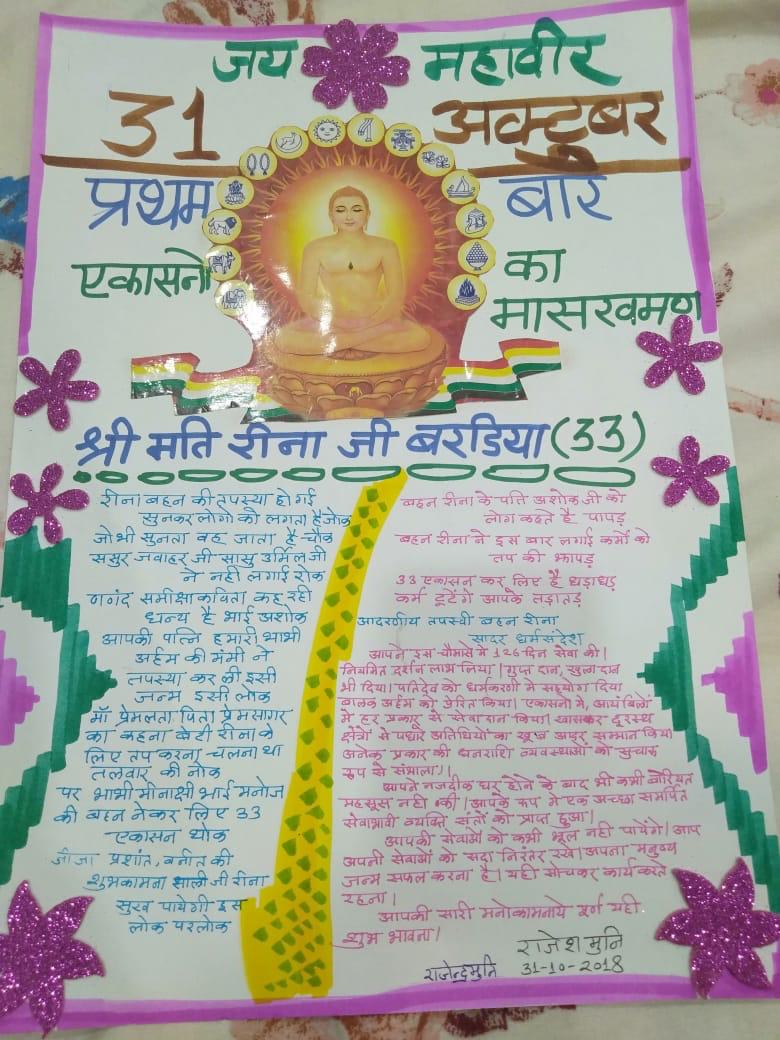 जय महावीर
31 अक्टुबर
प्रथम बार
एकासनो का
मासखमण
श्री मति रीना जी बरडिया (33)
रीना बहन की तपस्या हो गई
सुनकर लोगो को लगता है जोक
जो भी सुनता वह जाता है चौंक
ससुर जवाहर जी सासु उर्मिल जी
ने नही लगाई रोक
णणंद समीक्षा कविता कह रही
धन्य है भाई अशोक
आपकी पत्नि हमारी भाभी
अर्हम की मंमी ने
तपस्या कर ली इसी
जन्म इसी लोक
माँ प्रेमलता पिता प्रेमसागर
का कहना बेटी रीना के
लिए तप करना चलना था
तलवार की नोक
पर भाभी मीनाक्षी भाई मनोज
की बहन नेकर लिए 33
एकासन थोक
जीजा प्रशांत, वनीत की
शुभकामना साली जी रीना
सुख पायेगी इस
लोक परलोक
बहन रीना के पति अशोक जी को
लोग कहते है पापड़
बहन रीना ने इस बार लगाई कर्मो को
तप की झापड़
33 एकासन कर लिए है धड़ाधड़
कर्म टूटेंगे आपके तड़ातड़
आदरणीय तपस्वी बहन रीना
सादर धर्मसंदेश
आपने इस चौमासे मे 126 दिन सेवा की।
नियमित दर्शन लाभ लिया। गुप्त दान, खुला दान
भी दिया। पतिदेव को धर्मकरणी मे सहयोग दिया
बालक अर्हम को प्रेरित किया। एकासनो मे, आयंबिलों
मे हर प्रकार से सेवादान किया। खासकर दूरस्थ
क्षेत्रो से पधारे अतिथियो का खूब आदर सम्मान किया
अनेक प्रकार की धनराशि व्यवस्थाओं को सुचारू
रूप से संभाला।।
आपने नजदीक घर होने के बाद भी कभी बोरियत
महसूस नही की। आपके रूप मे एक अच्छा समर्पित
सेवाभावी व्यक्ति संतो को प्राप्त हुआ।
आपकी सेवाओं को कभी भूल नही पायेंगे। आप
अपनी सेवाओं को सदा निरंतर रखे। अपना मनुष्य
जन्म सफल करना है। यही सोचकर कार्य करते
रहना।
आपकी सारी मनोकामनाये पूर्ण यही
शुभ भावना।
राजेश मुनि
राजेन्द्र मुनि 31-10-2018